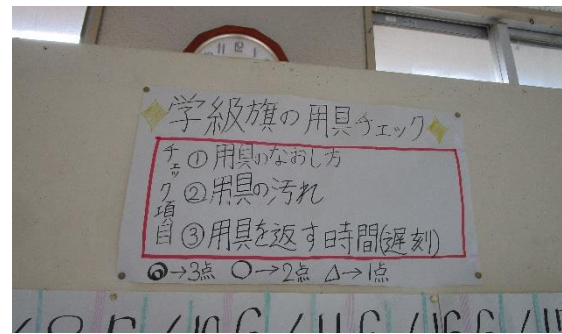 学級旗の用具チェック
チェック項目
①用具のなおし方
②用具の汚れ
③用具を返す時間(遅刻)
◎→3点 ○→2点 △→1点